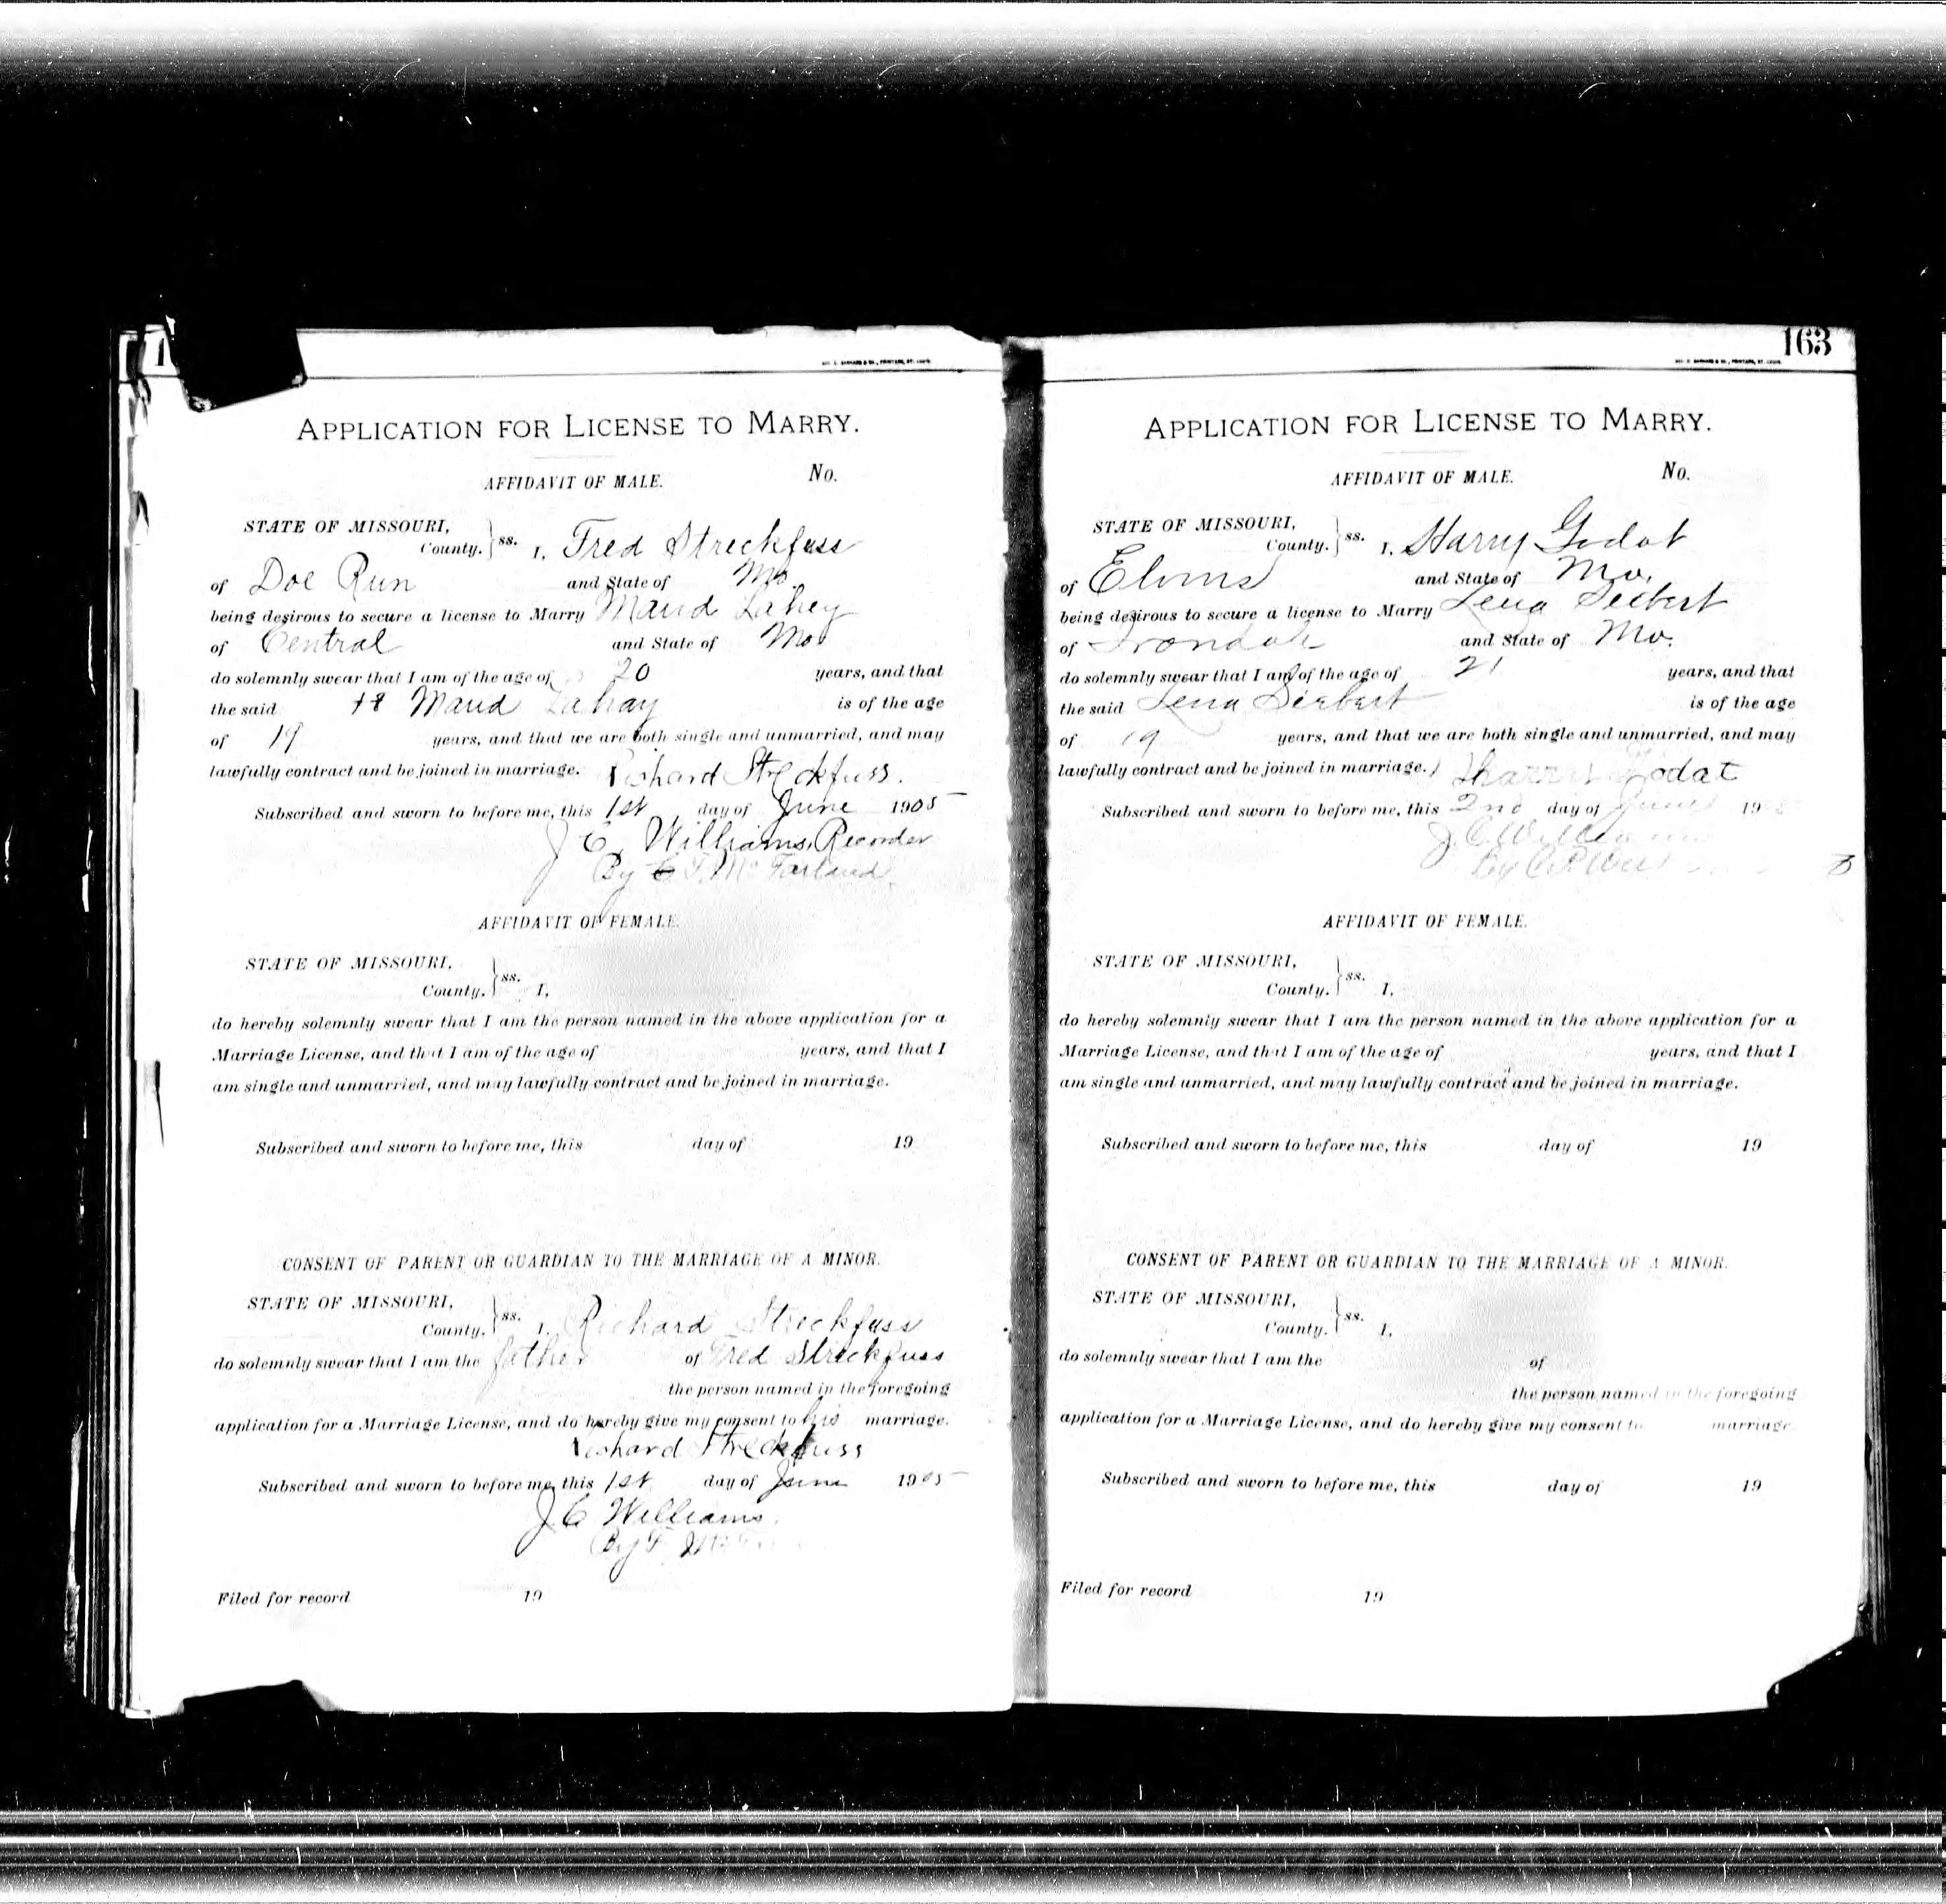 APPLICATION FOR LICENSE TO MARRY.
AFFIDAVIT OF MALE. No.
STATE OF MISSOURI,
County. ss. I, Fred Streckfuss
of Doe Run and State of Mo.
being desirous to secure a license to Marry Maud Lahey
of Central and State of Mo
do solemnly swear that I am of the age of 20 years, and that
the said Maud Lahay is of the age
of 19 years, and that we are both single and unmarried, and may
lawfully contract and be joined in marriage. Richard Streckfuss.
Subscribed and sworn to before me, this 1st day of June 1905
J C. Williams, Recorder
By T. McFarland
AFFIDAVIT OF FEMALE.
STATE OF MISSOURI,
County. ss. I,
do hereby solemnly swear that I am the person named in the above application for a
Marriage License, and that I am of the age of years, and that I
am single and unmarried, and may lawfully contract and be joined in marriage.
Subscribed and sworn to before me, this day of 19
CONSENT OF PARENT OR GUARDIAN TO THE MARRIAGE OF A MINOR.
STATE OF MISSOURI,
County. ss. I, Richard Streckfuss
do solemnly swear that I am the father of Fred Streckfuss
the person named in the foregoing
application for a Marriage License, and do hereby give my consent to his marriage.
Richard Streckfuss
Subscribed and sworn to before me, this 1st day of June 1905
J C Williams.
By
Filed for record 19
163
APPLICATION FOR LICENSE TO MARRY.
AFFIDAVIT OF MALE. No.
STATE OF MISSOURI,
County. ss. I, Harry Godat
of Elvins and State of Mo.
being desirous to secure a license to Marry Lena Siebert
of Irondale and State of Mo.
do solemnly swear that I am of the age of 21 years, and that
the said Lena Siebert is of the age
of 19 years, and that we are both single and unmarried, and may
lawfully contract and be joined in marriage. Harry Godat
Subscribed and sworn to before me, this 2nd day of June 190
J. C. Williams
By
AFFIDAVIT OF FEMALE.
STATE OF MISSOURI,
County. ss. I,
do hereby solemnly swear that I am the person named in the above application for a
Marriage License, and that I am of the age of years, and that I
am single and unmarried, and may lawfully contract and be joined in marriage.
Subscribed and sworn to before me, this day of 19
CONSENT OF PARENT OR GUARDIAN TO THE MARRIAGE OF A MINOR.
STATE OF MISSOURI,
County. ss. I,
do solemnly swear that I am the of
the person named in the foregoing
application for a Marriage License, and do hereby give my consent to marriage.
Subscribed and sworn to before me, this day of 19
Filed for record 19